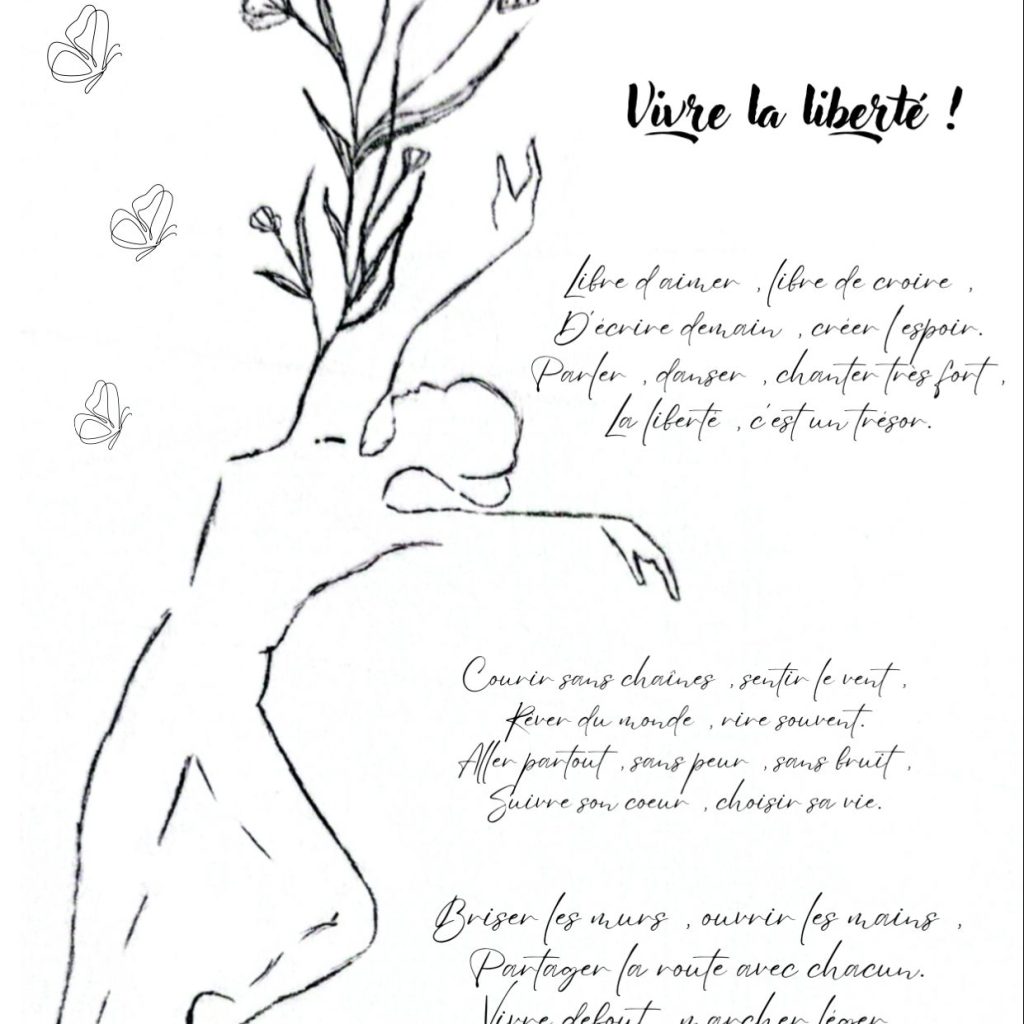 Vivre la liberté !
Libre d'aimer , libre de croire ,
D'écrire demain , créer l'espoir.
Parler , danser , chanter très fort ,
La liberté , c'est un trésor.
Courir sans chaînes , sentir le vent ,
Rêver du monde , rire souvent.
Aller partout , sans peur , sans bruit ,
Suivre son coeur , choisir sa vie.
Briser les murs , ouvrir les mains ,
Partager la route avec chacun.
Vivre debout , marcher léger